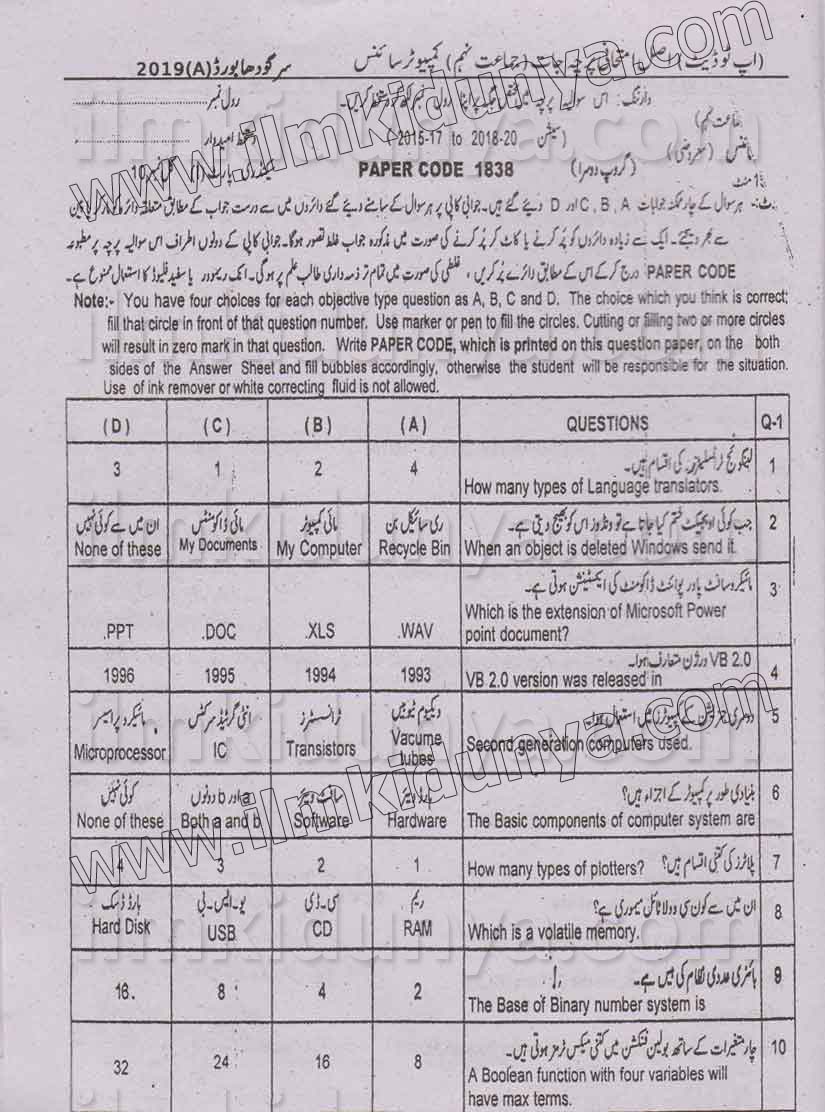 (اپ ٹو ڈیٹ) اصل امتحانی پرچہ جات (جماعت نہم) کمپیوٹر سائنس سرگودھا بورڈ 2019(A)
وارننگ: اس سوالیہ پرچہ پر اپنا رول نمبر لکھ کر دستخط کریں۔ رول نمبر
جماعت نہم) (سیشن 2015-17 to 2018-20) دستخط امیدوار
سائنس (معروضی) (گروپ دوسرا) PAPER CODE 1838
منٹ
نوٹ:- ہر سوال کے چار ممکنہ جوابات C, B, A اور D دیئے گئے ہیں۔ جوابی کاپی پر ہر سوال کے سامنے دیئے گئے دائروں میں سے درست جواب کے مطابق متعلقہ دائرہ کو مارکر یا پین
سے بھر دیجئے۔ ایک سے زیادہ دائروں کو پُر کرنے یا کاٹ کر پُر کرنے کی صورت میں مذکورہ جواب غلط تصور ہوگا۔ جوابی کاپی کے دونوں اطراف اس سوالیہ پرچہ پر مطبوعہ
PAPER CODE درج کر کے اس کے مطابق دائرے پُر کریں، غلطی کی صورت میں تمام تر ذمہ داری طالب علم پر ہوگی۔ انک ریموور یا سفید فلیوڈ کا استعمال ممنوع ہے۔
Note:- You have four choices for each objective type question as A, B, C and D. The choice which you think is correct;
fill that circle in front of that question number. Use marker or pen to fill the circles. Cutting or filling two or more circles
will result in zero mark in that question. Write PAPER CODE, which is printed on this question paper, on the both
sides of the Answer Sheet and fill bubbles accordingly, otherwise the student will be responsible for the situation.
Use of ink remover or white correcting fluid is not allowed.
(D) (C) (B) (A) QUESTIONS Q-1
لینگوئج ٹرانسلیٹرز کی اقسام ہیں۔
3 1 2 4 How many types of Language translators. 1
ان میں سے کوئی نہیں مائی ڈاکومنٹس مائی کمپیوٹر ری سائیکل بن جب کوئی اوبجیکٹ ختم کیا جاتا ہے تو ونڈوز اس کو بھیج دیتی ہے۔ 2
None of these My Documents My Computer Recycle Bin When an object is deleted Windows send it.
مائیکروسافٹ پاور پوائنٹ ڈاکومنٹ کی ایکسٹینشن ہوتی ہے۔ 3
Which is the extension of Microsoft Power
.PPT .DOC .XLS .WAV point document?
VB 2.0 ورژن متعارف ہوا۔
1996 1995 1994 1993 VB 2.0 version was released in 4
مائیکرو پراسیسر انٹی گریٹڈ سرکٹس ٹرانسسٹرز ویکیوم ٹیوبیں دوسری جنریشن کے کمپیوٹرز میں استعمال ہوا۔ 5
Microprocessor IC Transistors Vacume tubes Second generation computers used.
کوئی نہیں a اور b دونوں سافٹ ویئر ہارڈ ویئر بنیادی طور پر کمپیوٹر کے اجزاء ہیں؟ 6
None of these Both a and b Software Hardware The Basic components of computer system are
4 3 2 1 How many types of plotters? پلاٹرز کی کتنی اقسام ہیں؟ 7
ہارڈ ڈسک یو۔ایس۔بی سی۔ڈی ریم ان میں سے کون سی وولاٹائل میموری ہے؟ 8
Hard Disk USB CD RAM Which is a volatile memory.
بائنری عددی نظام کی بیس ہے۔ 9
16. 8 4 2 The Base of Binary number system is
چار متغیرات کے ساتھ بولین فنکشن میں کتنی میکس ٹرمز ہوتی ہیں۔ 10
32 24 16 8 A Boolean function with four variables will
have max terms.
www.ilmkidunya.com
www.ilmkidunya.com
ilmkidunya.com